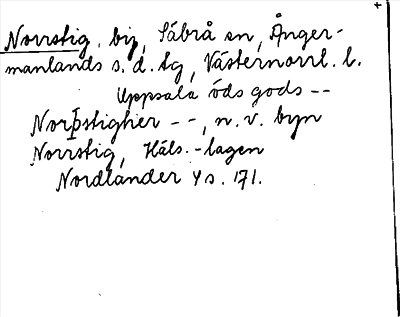 Norrstig, by, Säbrå sn, Ånger-
manlands s. d. tg, Västernorrl. l.
Uppsala öds gods --
Norþstigher --, n. v. byn
Norrstig, Häls.-lagen
Nordlander 4 s. 171.